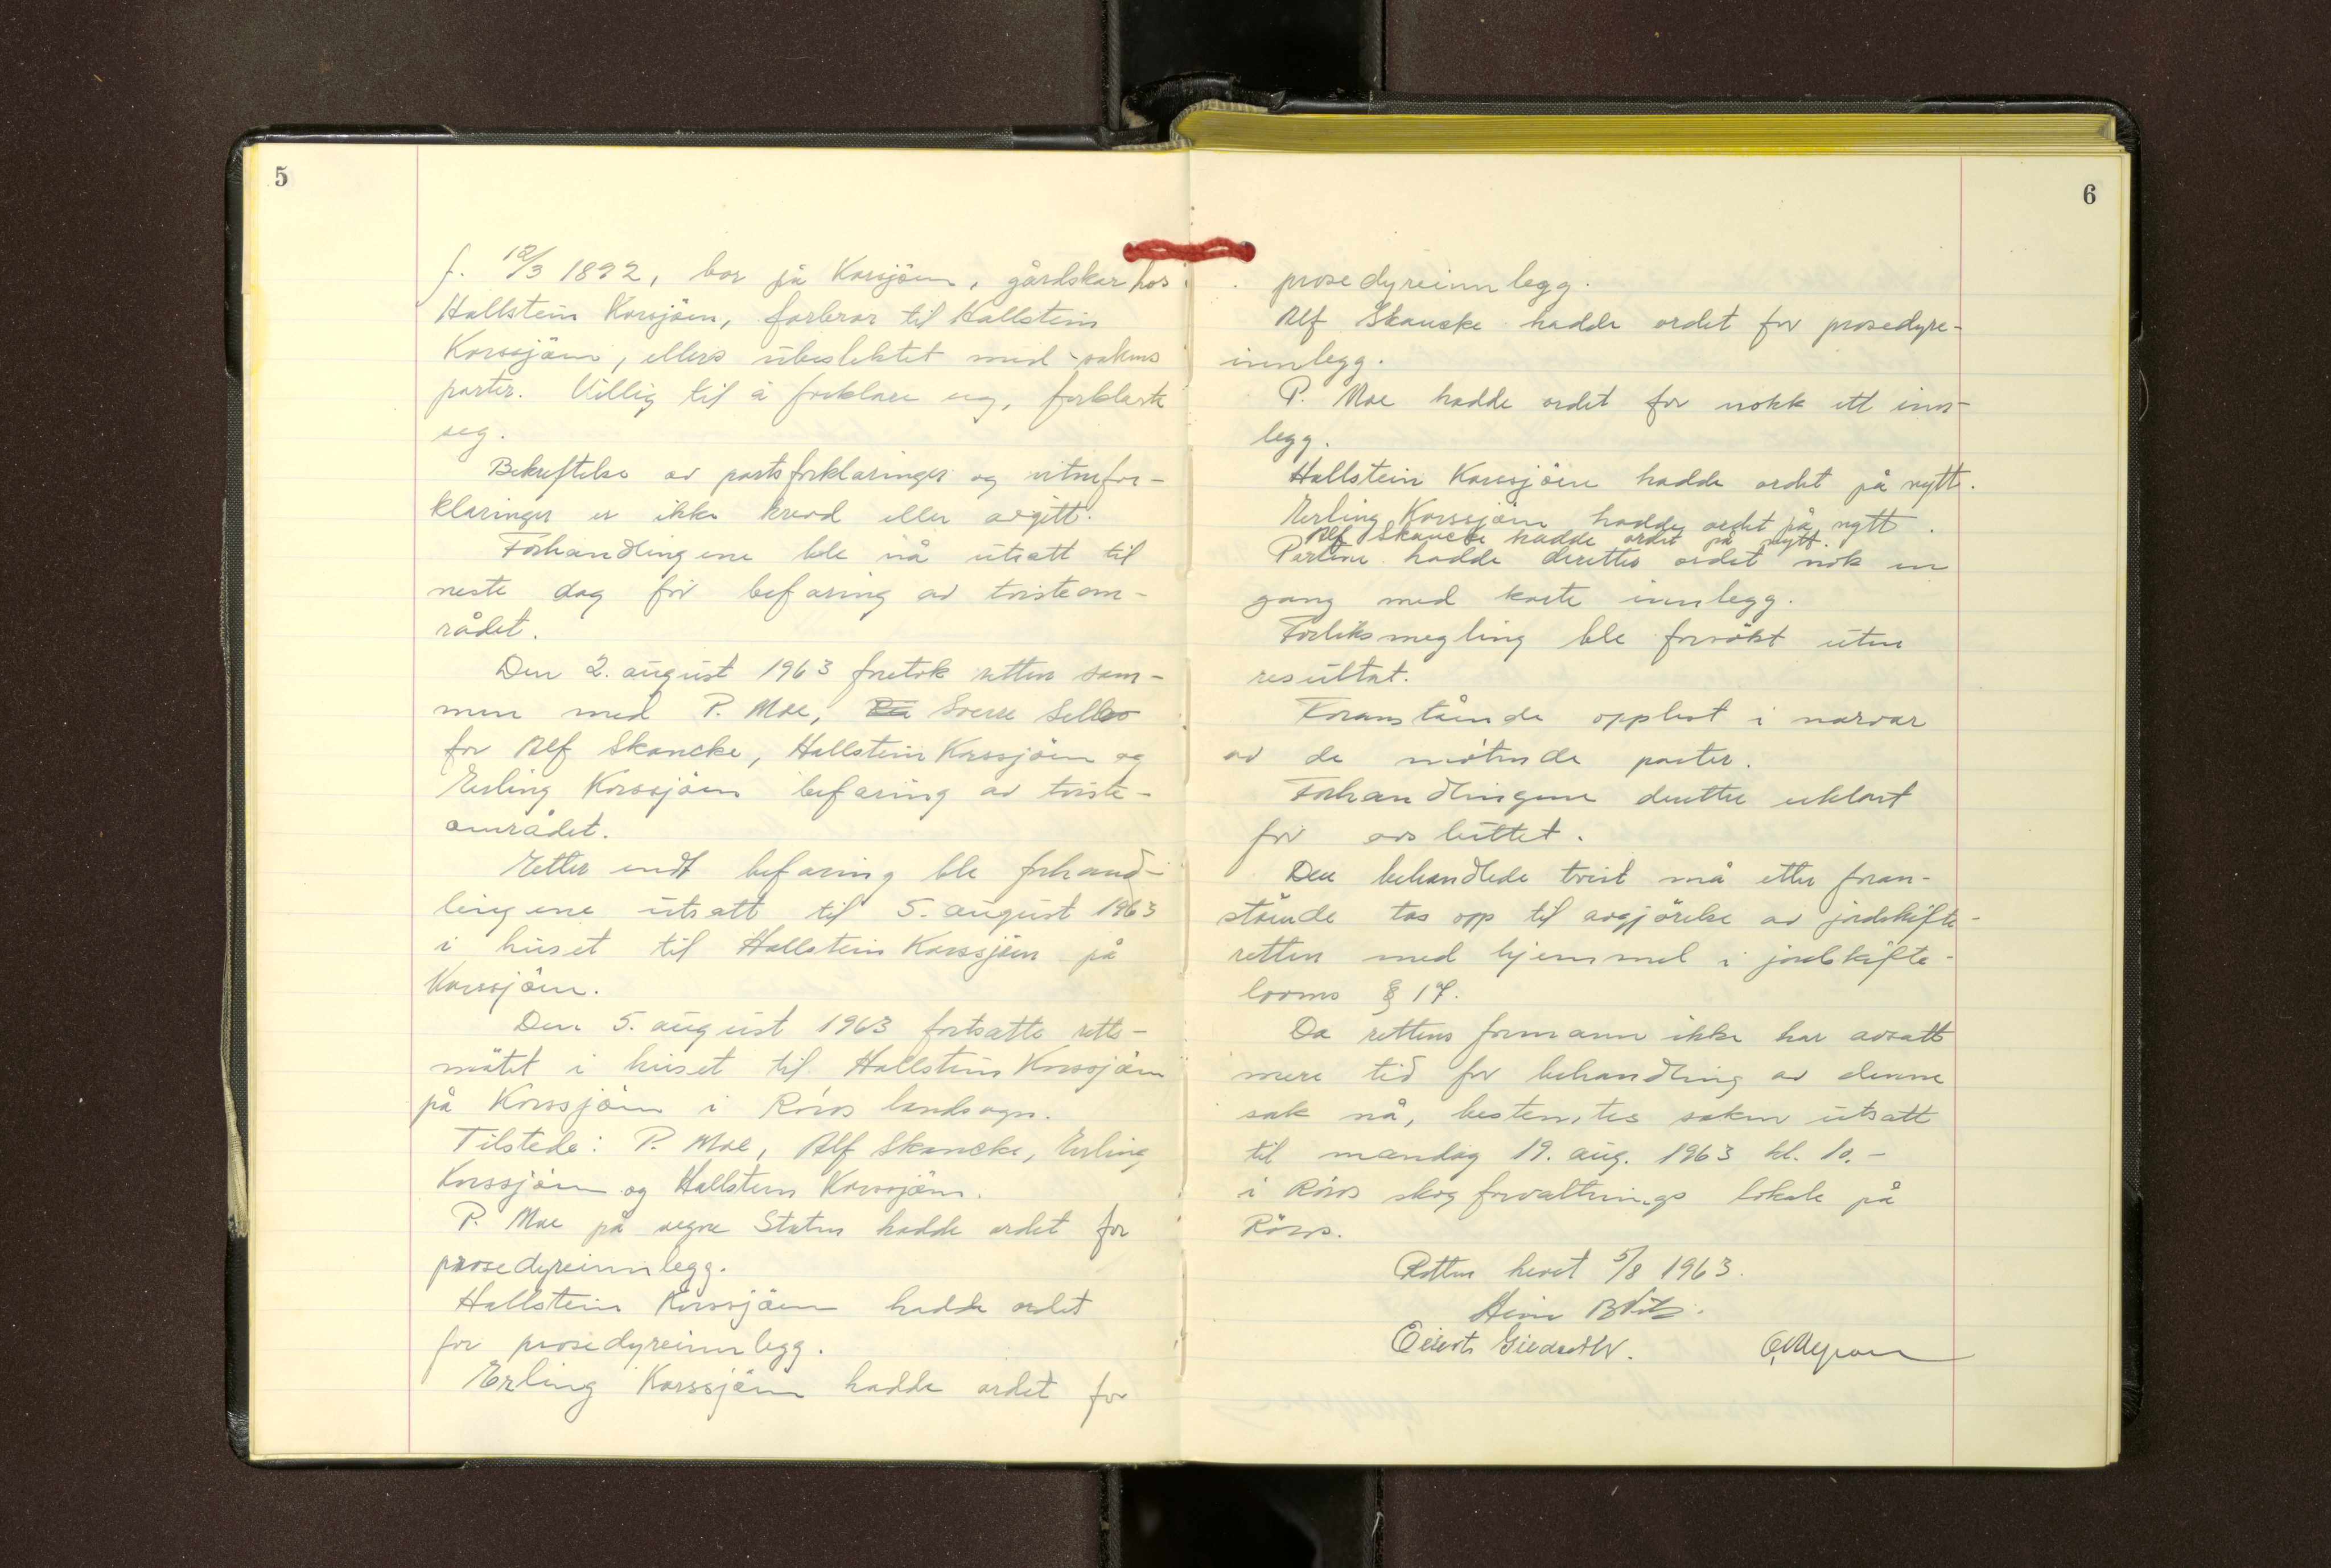 5
f. 12/3 1892, bor på Korssjöen, gårdskar hos
Hallstein Korssjöen, farbror til Hallstein
Korssjöen, ellers ubeslektet med sakens
parter. Villig til å forklare seg, forklarte
seg.
Bekreftelse av partsforklaringer og vitnefor-
klaringer er ikke krevd eller avgitt.
Forhandlingene ble nå utsatt til
neste dag for befaring av tvisteom-
rådet.
Den 2. august 1963 foretok retten sam-
men med P. Moe, Sverre Sellbo
for Alf Skancke, Hallstein Korssjöen og
Erling Korssjöen befaring av tviste-
området.
Etter endt befaring ble forhand-
lingene utsatt til 5. august 1963
i huset til Hallstein Korssjöen på
Korssjöen.
Den 5. august 1963 fortsatte retts-
mötet i huset til Hallstein Korssjöen
på Korssjöen i Röros landsogn.
Tilstede: P. Moe, Alf Skancke, Erling
Korssjöen og Hallstein Korssjöen.
P. Moe på vegne Staten hadde ordet for
prosedyreinnlegg.
Hallstein Korssjöen hadde ordet
for prosedyreinnlegg.
Erling Korssjöen hadde ordet for
6
prosedyreinnlegg.
Alf Skancke hadde ordet for prosedyre-
innlegg.
P. Moe hadde ordet for nokk ett inn-
legg.
Hallstein Korssjöen hadde ordet på nytt.
Erling Korssjöen hadde ordet på nytt.
Alf Skancke hadde ordet på nytt.
Partene hadde deretter ordet nok en
gang med korte innlegg.
Forliksmegling ble forsökt uten
resultat.
Foranstående opplest i nærvær
av de mötende parter.
Forhandlingene deretter erklært
for avsluttet.
Den behandlede tvist må etter foran-
stående tas opp til avgjörelse av jordskifte-
retten med hjemmel i jordskifte-
lovens § 17.
Da rettens formann ikke har avsatt
mere tid for behandling av denne
sak nå, bestemtes saken utsatt
til mandag 19. aug. 1963 kl. 10.-
i Röros skogforvaltnings lokale på
Röros.
Retten hevet 5/8 1963.